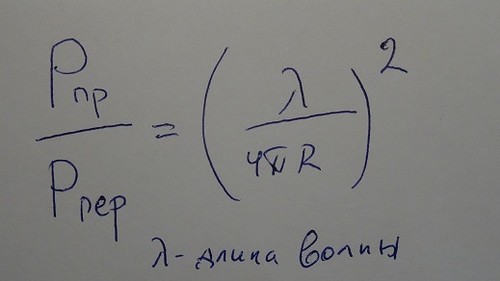 Pпр/Pпер = (λ/4πR)²
λ - длина волны